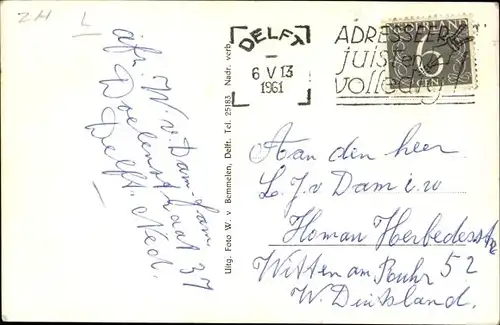 ZH L
afz. W. v. Dam-fam
Doelenstraat 37
Delft. Ned.
Uitg. Foto W. v. Bemmelen, Delft. Tel. 25183 Nadr. verb.
DELFT
6 V 13
1961
ADRESSEER
juist en
volledig
NEDERLAND
6
Aan den heer
L. J. v Dam i.w
Homan Herbedestre
Witten am Ruhr 52
W. Duitsland.